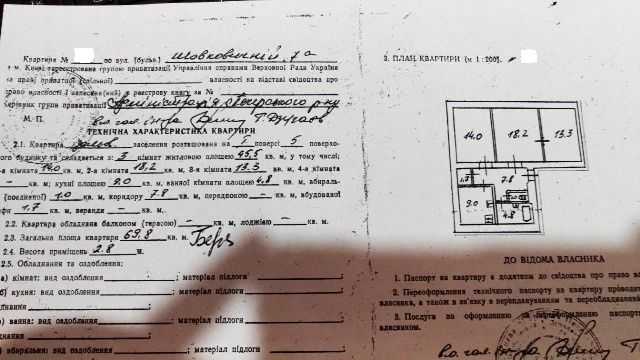 Квартира № по вул. (бульв.) Шовковичній, 7а
в м. Києві зареєстрована групою приватизації Управління справами Верховної Ради України
на праві приватної (спільної) власності на підставі свідоцтва про
право власності і записана(ий) в реєстрову книгу за №
Керівник групи приватизації Адміністрація Печерського р-ну
М. П.
ТЕХНІЧНА ХАРАКТЕРИСТИКА КВАРТИРИ
2.1. Квартира заселення розташована на 1 поверсі 5 поверхо-
вого будинку та складається з: 3 кімнат житловою площею 45,5 кв. м, у тому числі;
1-а кімната 14.0 кв. м, 2-а кімната 18,2 кв. м, 3-я кімната 13.3 кв. м, 4-а кімната
– кв. м; кухні площею 9.0 кв. м, ванної кімнати площею 4,8 кв. м, вбираль-
(поєднаної) 1.0 кв. м, коридору 7.8 кв. м, передпокою – кв. м, вбудованої
1,7 кв. м, веранди – кв. м.
2.2. Квартира обладнана балконом (терасою) – кв. м, лоджією – кв. м.
2.3. Загальна площа квартири 69,8 кв. м.
2.4. Висота приміщень 2.8 м.
2.5. Обладнання та оздоблення:
а) кімнат: вид оздоблення ; матеріал підлоги
б) кухні: вид оздоблення ; матеріал підлоги
в) ванна: вид оздоблення ; матеріал підлоги
г) вбиральня: вид оздоблення ; матеріал підлоги
3. ПЛАН КВАРТИРИ (м 1 : 200).
14.0 18.2 13.3
1.7 7.8
9.0 4.8
ДО ВІДОМА ВЛАСНИКА
1. Паспорт на квартиру є додатком до свідоцтва про право
2. Переоформлення технічного паспорту на квартиру
власника, а також в зв'язку в переплануванням та переобладнанням
3. Послуга за оформлення та переоформлення паспорта
власником.